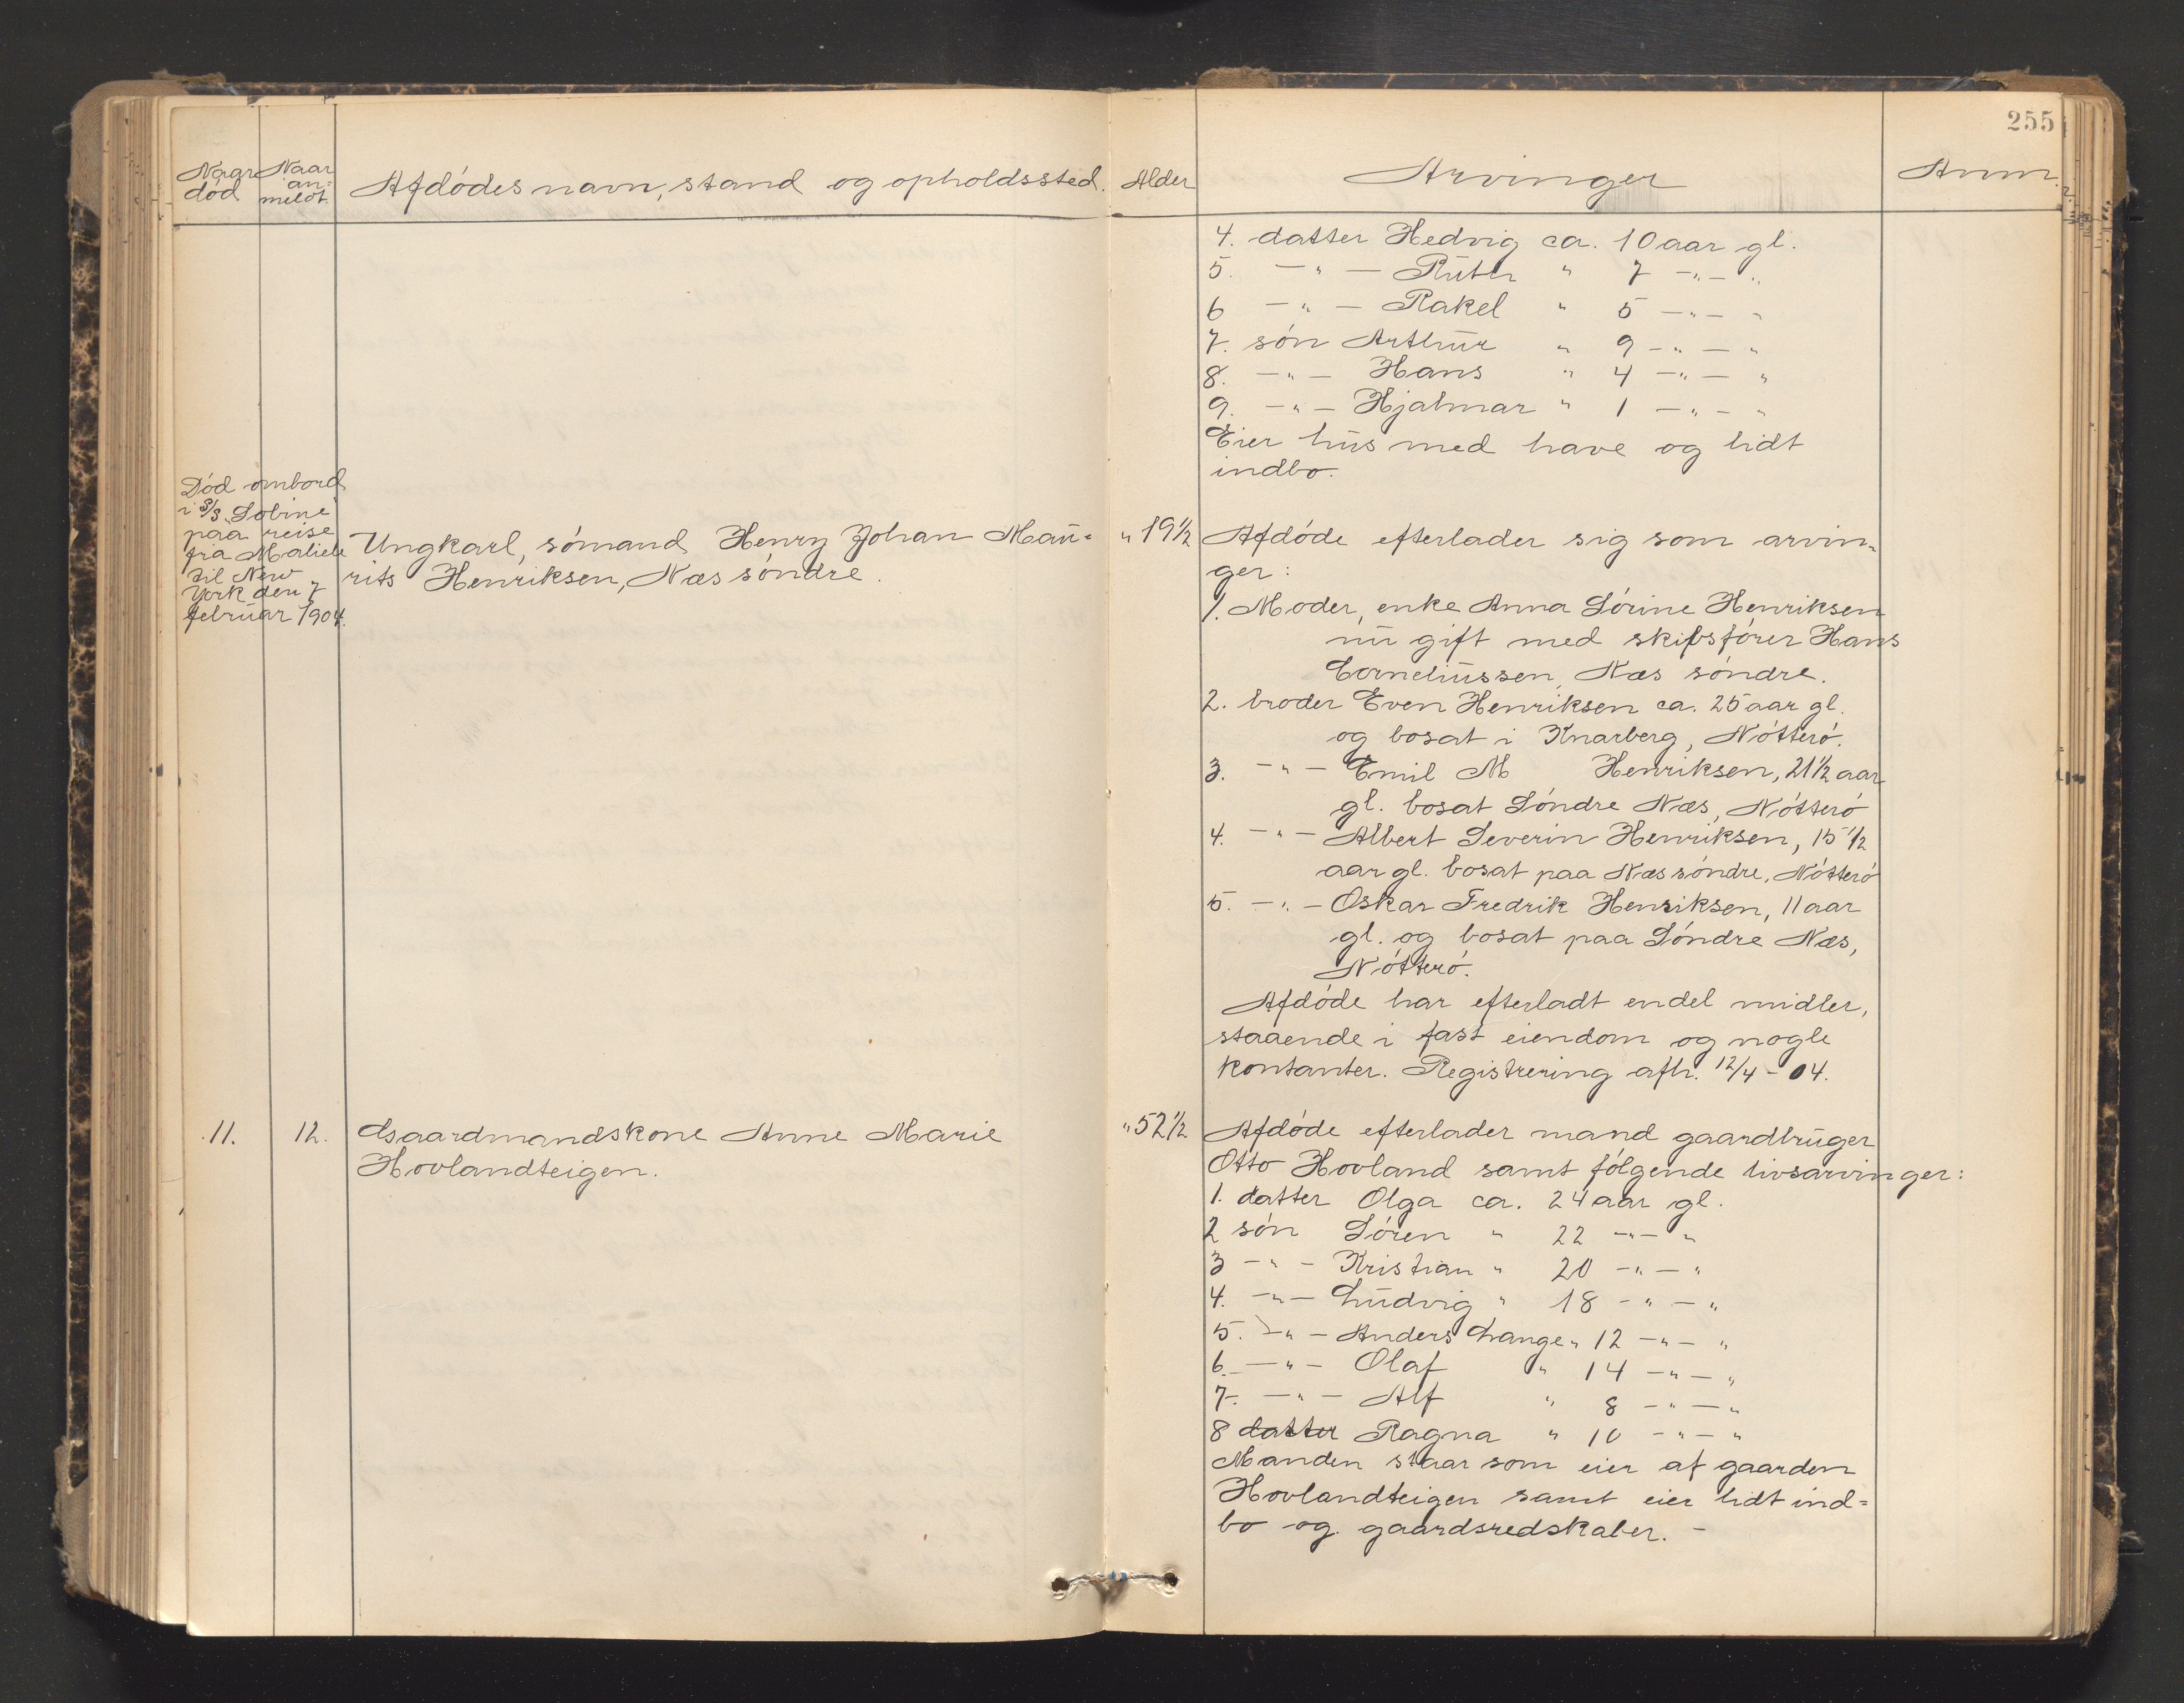 255
Naar død
Naar an=
meldt.
Afdødes navn, stand og opholdssted.
Alder
Arvinger
Anm.
4. datter Hedvig ca. 10 aar gl.
5. —"— Ruth " 7 —"— "
6 —"— Rakel " 5 —"— "
7. søn Arthur " 9 —"— "
8. —"— Hans " 4 —"— "
9. —"— Hjalmar " 1 —"— "
Eier hus med have og lidt
indbo.
Død ombord
i S/S
paa reise
fra
til New
York den 7
februar 1904.
Ungkarl, sømand Henry Johan Mau=
rits Henriksen, Næs søndre.
" 19 1/2
Afdøde efterlader sig som arvin=
ger:
1. Moder, enke Anna Sørine Henriksen
nu gift med skibsfører Hans
Corneliussen, Næs søndre.
2. broder Even Henriksen ca. 25 aar gl.
og bosat i Knarberg, Nøtterø.
3. —"— Emil M Henriksen, 21 1/2 aar
gl. bosat Søndre Næs, Nøtterø
4. —"— Albert Severin Henriksen, 15 1/2
aar gl. bosat paa Næs søndre, Nøtterø
5. —"— Oskar Fredrik Henriksen, 11 aar
gl. og bosat paa Søndre Næs,
Nøtterø.
Afdøde har efterladt endel midler,
staaende i fast eiendom og nogle
kontanter. Registrering afh. 12/4 - 04.
11. 12. Gaardmandskone Anne Marie
Hovlandteigen.
" 52 1/2
Afdøde efterlader mand gaardbruger
Otto Hovland samt følgende livsarvinger:
1. datter Olga ca. 24 aar gl.
2 søn Søren " 22 —"— "
3 —"— Kristian " 20 —"— "
4. —"— Ludvig " 18 —"— "
5. —"— Anders Lange " 12 —"— "
6. —"— Olaf " 14 —"— "
7. —"— Alf " 8 —"— "
8 datter Ragna " 10 —"— "
Manden staar som eier af gaarden
Hovlandteigen samt eier lidt ind=
bo og gaardsredskaber. —